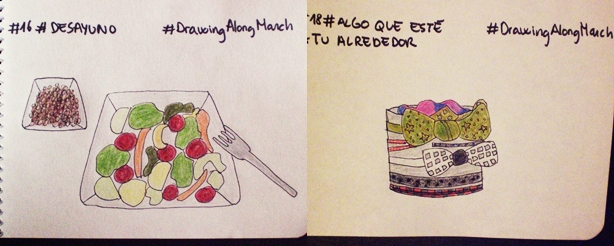 #16 # DESAYUNO
#DrawingAlongMarch
18# ALGO QUE ESTÉ
TU ALREDEDOR
#DrawingAlongMarch